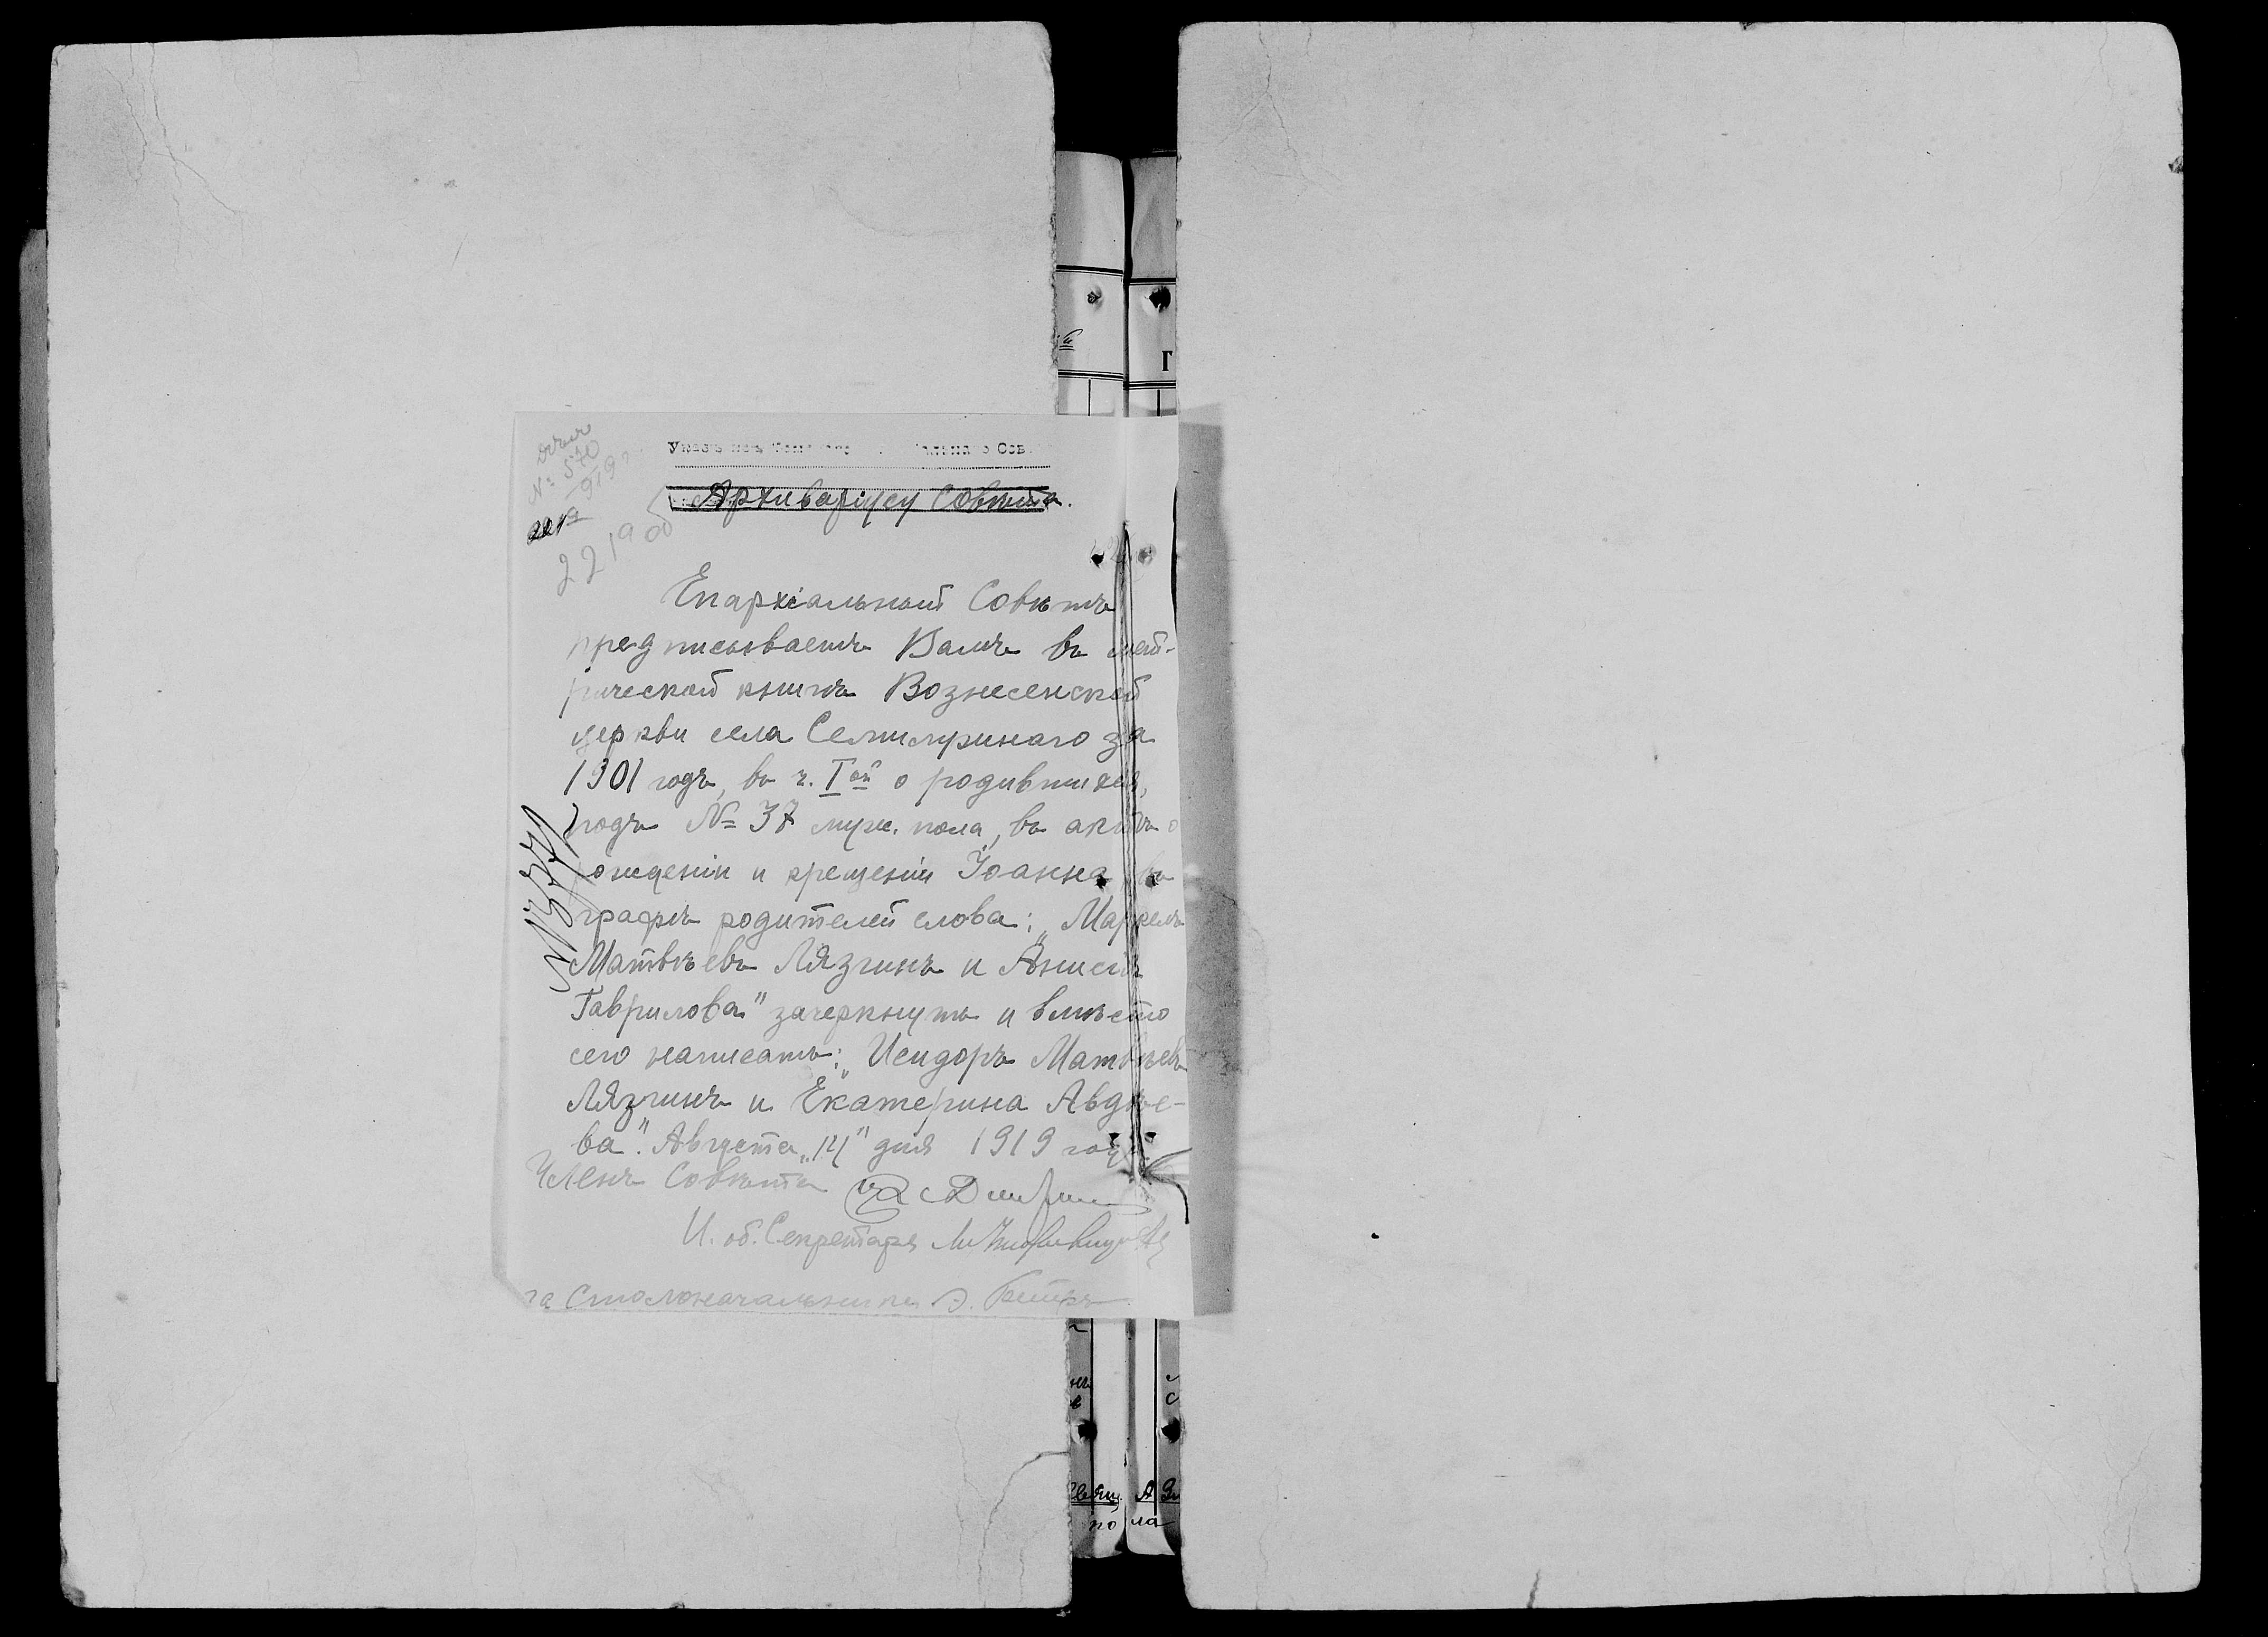 Указъ изъ
Архиваріусу Совѣта.
№ 570
919
221 9
Епархіальный Совѣтъ
предписываетъ Вамъ въ мет-
рической книгѣ Вознесенской
церкви села за
1901 годъ, въ ч. Iой о родившихся,
подъ № 37 муж. пола, въ актѣ о
рожденіи и крещеніи Іоанна, въ
графѣ родителей слова: „Маркелъ
Матвѣевъ Лязгинъ и
Гаврилова" зачеркнуть и вмѣсто
сего написать: „Исидоръ Матвѣевъ
Лязгинъ и Екатерина Авдѣе-
ва". Августа „14" дня 1919 года.
Членъ Совѣта
И. об. Секретаря
За Столоначальника